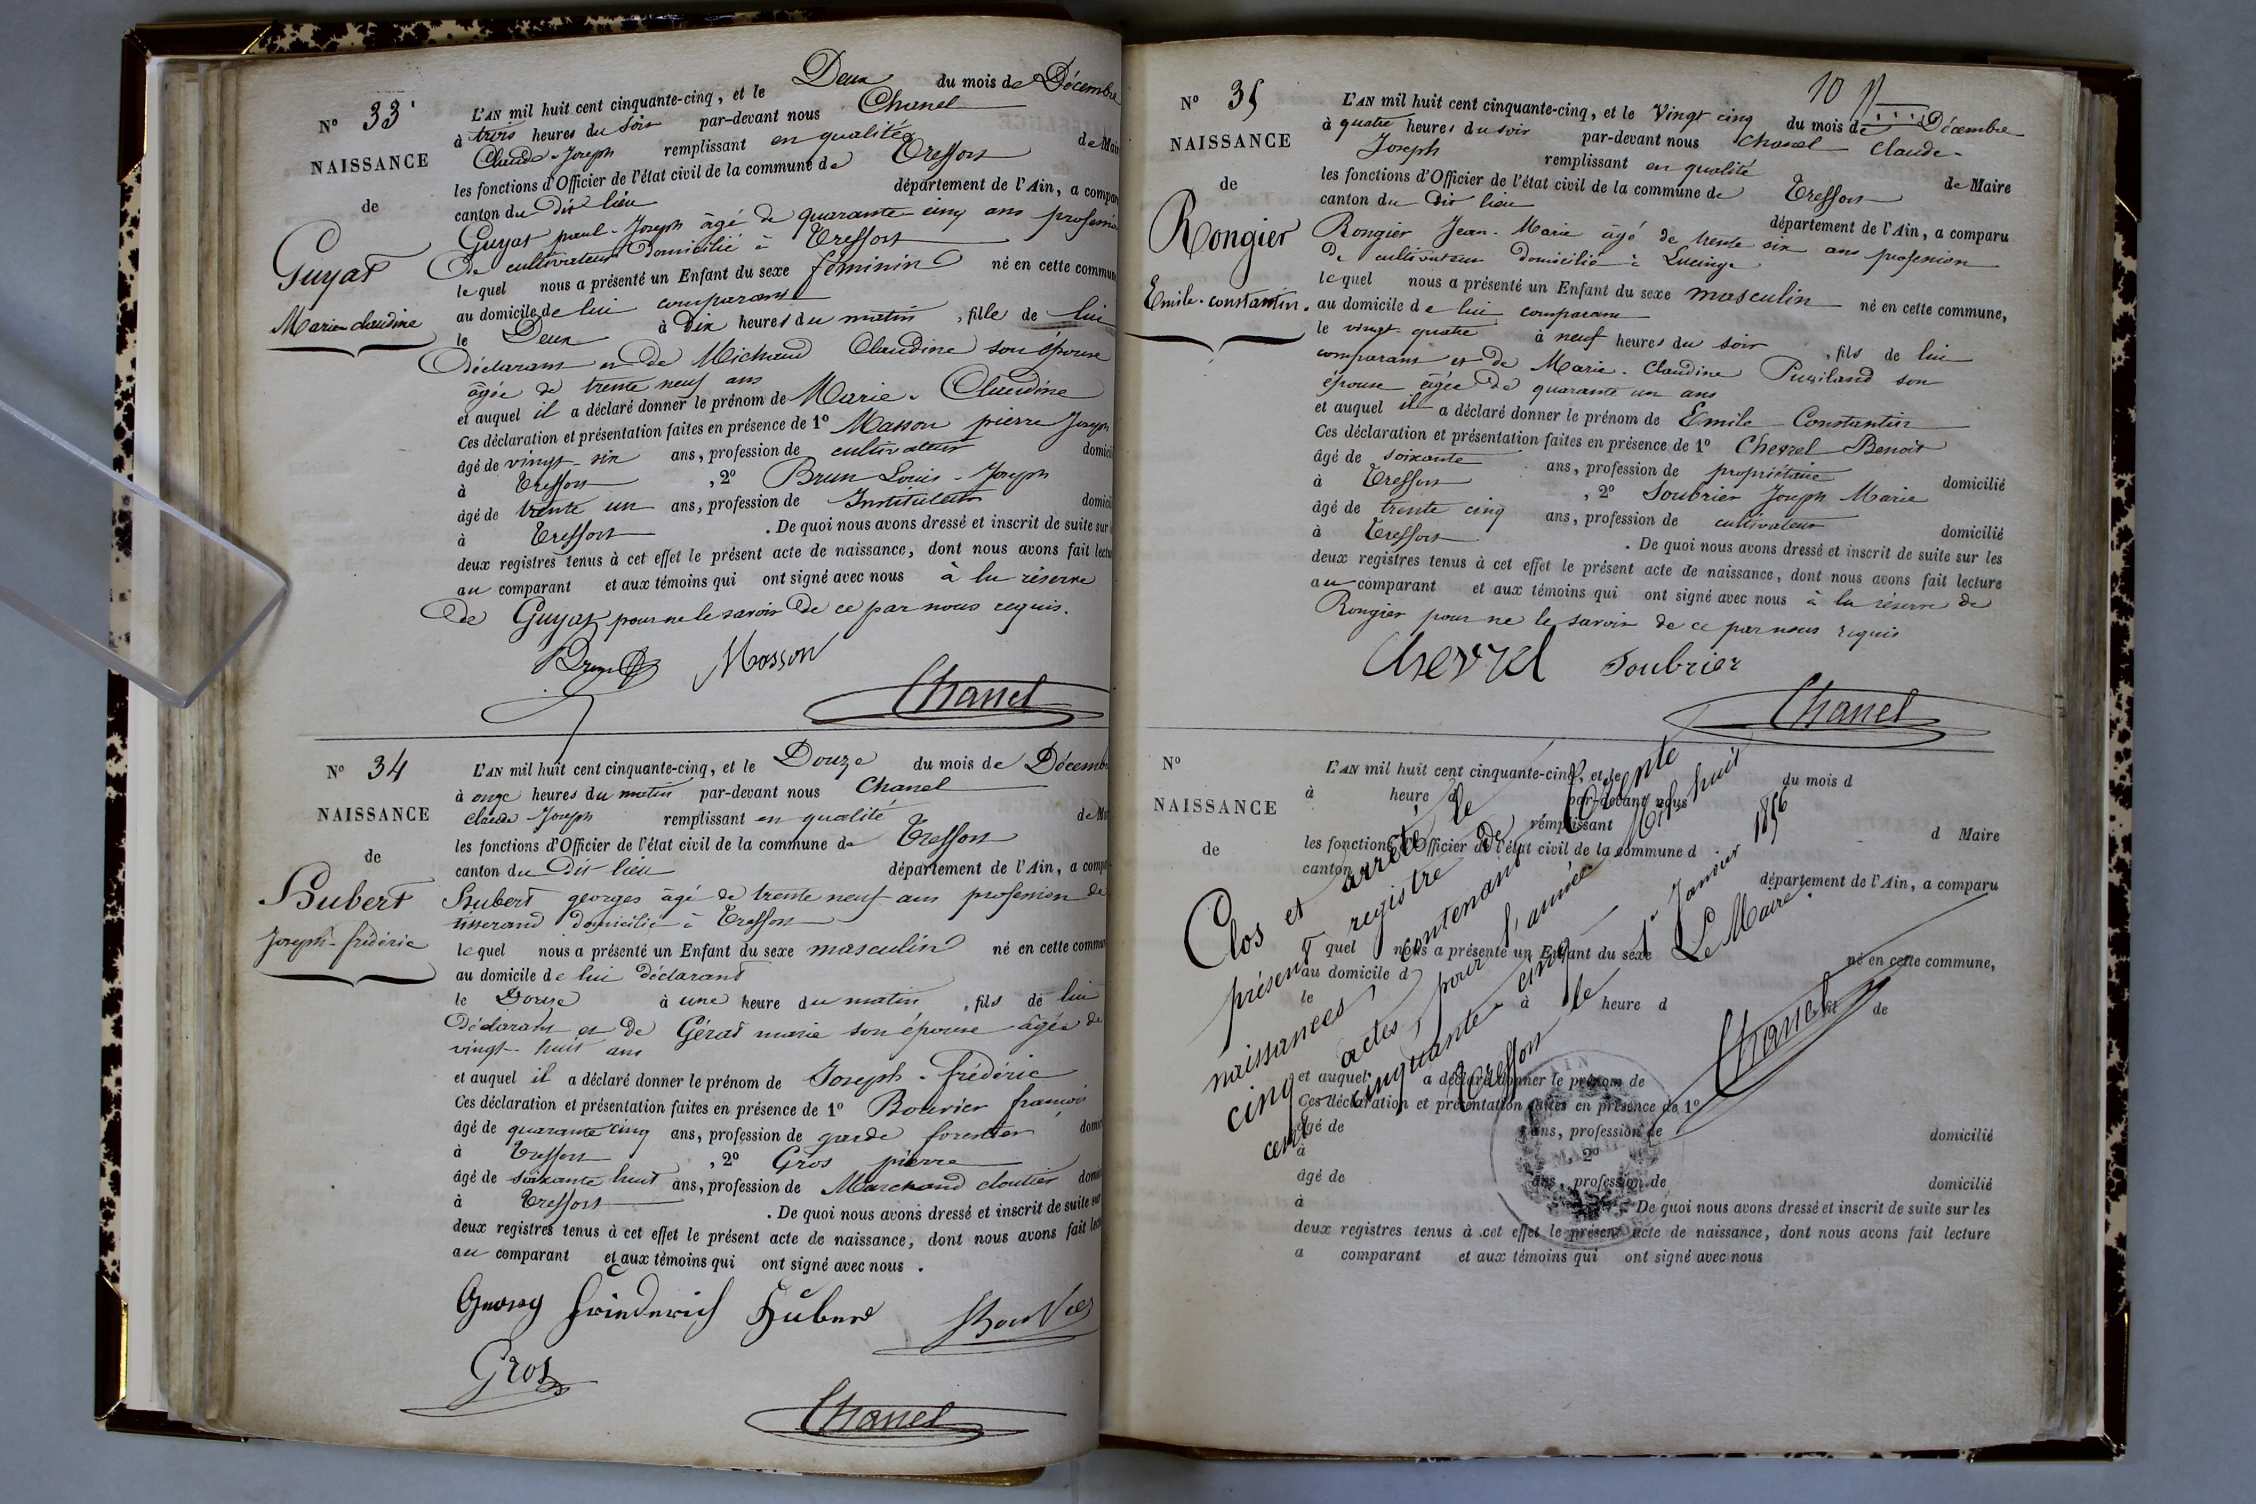 N° 33
NAISSANCE
de
Guyat
Marie-claudine
L'AN mil huit cent cinquante-cinq, et le Deux du mois de Décembre
à trois heures du soir par-devant nous Chanel
Claude-Joseph remplissant en qualité de Mair
les fonctions d'Officier de l'état civil de la commune de Treffort
canton du dit lieu département de l'Ain, a compar
Guyat paul-Joseph âgé de quarante-cinq ans profession
de cultivateur domicilié à Treffort
lequel nous a présenté un Enfant du sexe féminin né en cette commun
au domicile de lui comparant
le Deux à Dix heures du matin, fille de lui
Déclarant et de Michaud Claudine son épouse
âgée de trente neuf ans
et auquel il a déclaré donner le prénom de Marie-Claudine
Ces déclaration et présentation faites en présence de 1° Masson pierre Joseph
âgé de vingt-six ans, profession de cultivateur domicil
à Treffort, 2° Brun Louis-Joseph
âgé de trente un ans, profession de Instituteur domicil
à Treffort. De quoi nous avons dressé et inscrit de suite sur
deux registres tenus à cet effet le présent acte de naissance, dont nous avons fait lectu
au comparant et aux témoins qui ont signé avec nous à la réserve
de Guyat pour ne le savoir de ce par nous requis.
Brun Masson
Chanel
N° 34
NAISSANCE
de
Hubert
Joseph-frédéric
L'AN mil huit cent cinquante-cinq, et le Douze du mois de Décemb
à onze heures du matin par-devant nous Chanel
Claude-Joseph remplissant en qualité de M
les fonctions d'Officier de l'état civil de la commune de Treffort
canton du dit lieu département de l'Ain, a comp
Hubert georges âgé de trente neuf ans profession de
tisserand domicilié à Treffort
lequel nous a présenté un Enfant du sexe masculin né en cette commun
au domicile de lui déclarant
le Douze à une heure du matin, fils de lui
Déclarant et de Gérat marie son épouse âgée de
vingt-huit ans
et auquel il a déclaré donner le prénom de Joseph-frédéric
Ces déclaration et présentation faites en présence de 1° Bouvier françois
âgé de quarante cinq ans, profession de garde forestier domi
à Treffort, 2° Gros pierre
âgé de soixante huit ans, profession de Marchand cloutier domi
à Treffort. De quoi nous avons dressé et inscrit de suite sur
deux registres tenus à cet effet le présent acte de naissance, dont nous avons fait lect
au comparant et aux témoins qui ont signé avec nous.
Georg Friederich Huber Bouvier
Gros
Chanel
10
N° 35
NAISSANCE
de
Rongier
Emile-constantin.
L'AN mil huit cent cinquante-cinq, et le Vingt cinq du mois de Décembre
à quatre heures du soir par-devant nous Chanel Claude-
Joseph remplissant en qualité de Maire
les fonctions d'Officier de l'état civil de la commune de Treffort
canton du dit lieu département de l'Ain, a comparu
Rongier Jean-Marie âgé de trente six ans profession
de cultivateur domicilié à Lucinge
lequel nous a présenté un Enfant du sexe masculin né en cette commune,
au domicile de lui comparant
le vingt-quatre à neuf heures du soir, fils de lui
comparant et de Marie-Claudine son
épouse âgée de quarante un ans
et auquel il a déclaré donner le prénom de Emile Constantin
Ces déclaration et présentation faites en présence de 1° Chevrel Benoit
âgé de soixante ans, profession de propriétaire domicilié
à Treffort, 2° Soubrier Joseph Marie
âgé de trente cinq ans, profession de cultivateur domicilié
à Treffort. De quoi nous avons dressé et inscrit de suite sur les
deux registres tenus à cet effet le présent acte de naissance, dont nous avons fait lecture
au comparant et aux témoins qui ont signé avec nous à la réserve de
Rongier pour ne le savoir de ce par nous requis
Chevrel Soubrier
Chanel
N°
NAISSANCE
de
L'AN mil huit cent cinquante-cinq, et le du mois d
à heure d par-devant nous
remplissant d Maire
les fonctions d'Officier de l'état civil de la commune d
canton département de l'Ain, a comparu
quel nous a présenté un Enfant du sexe né en cette commune,
au domicile d
le à heure d fil de
et auquel a déclaré donner le prénom de
Ces déclaration et présentation faites en présence de 1°
âgé de ans, profession de domicilié
à 2°
âgé de ans, profession de domicilié
à De quoi nous avons dressé et inscrit de suite sur les
deux registres tenus à cet effet le présent acte de naissance, dont nous avons fait lecture
a comparant et aux témoins qui ont signé avec nous
Clos et arrêté le
présent registre de
naissances, contenant trente
cinq actes, pour l'année Mil huit
cent cinquante-cinq
Treffort le 1er Janvier 1856
Le Maire.
Chanel
AIN